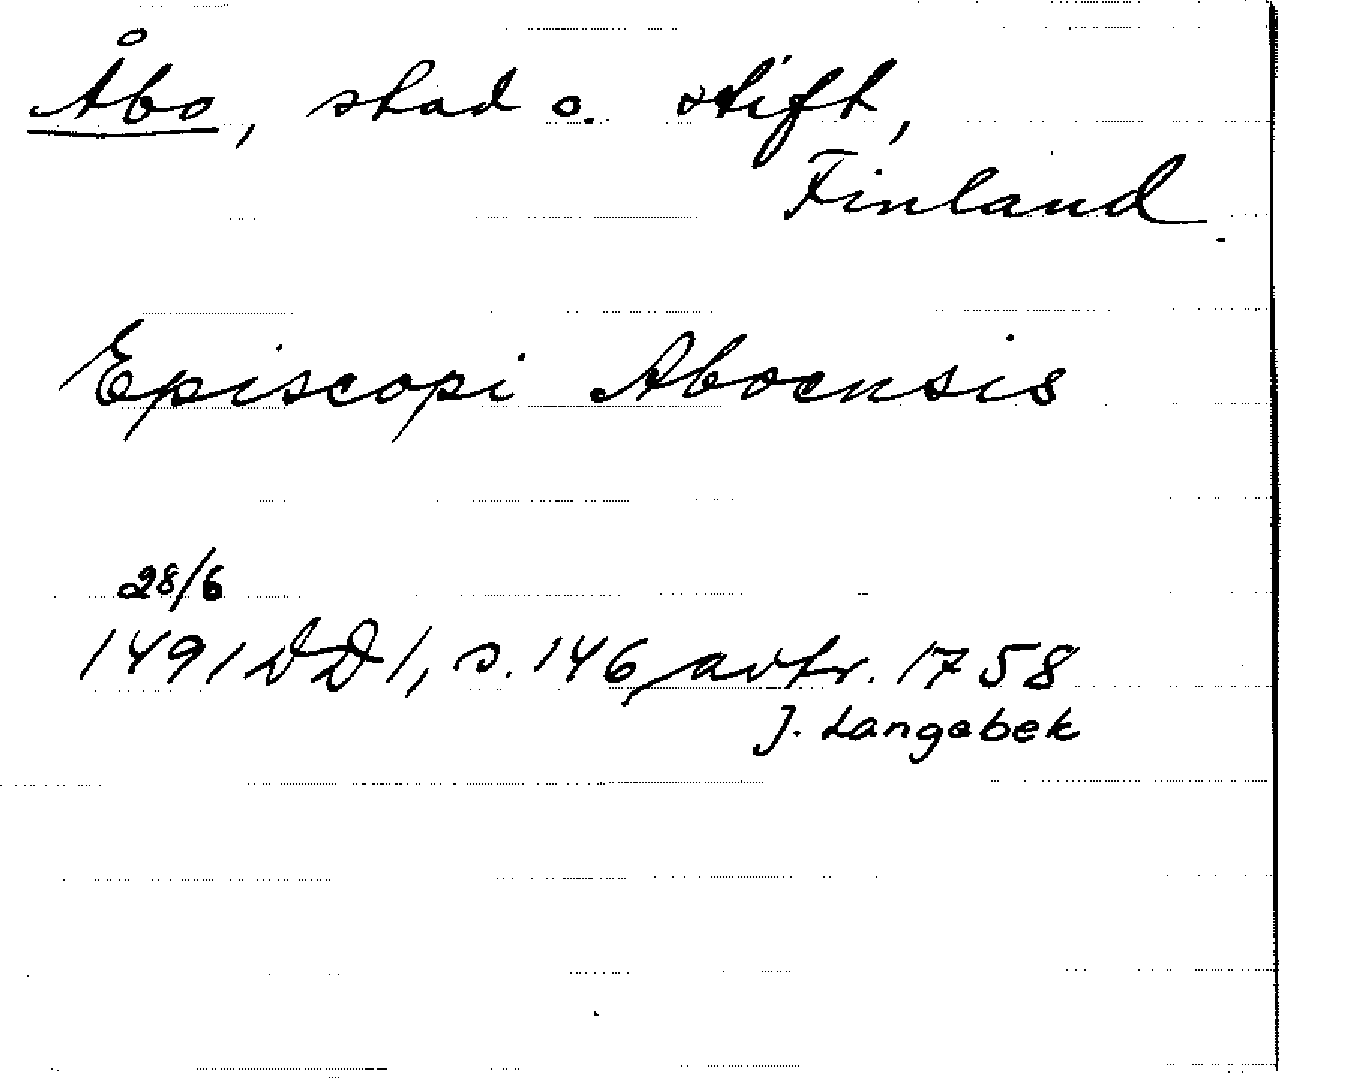 Åbo, stad o. stift,
Finland.
Episcopi Aboensis
28/6
1491 DD 1, s. 146, avtr. 1758
J. Langebek